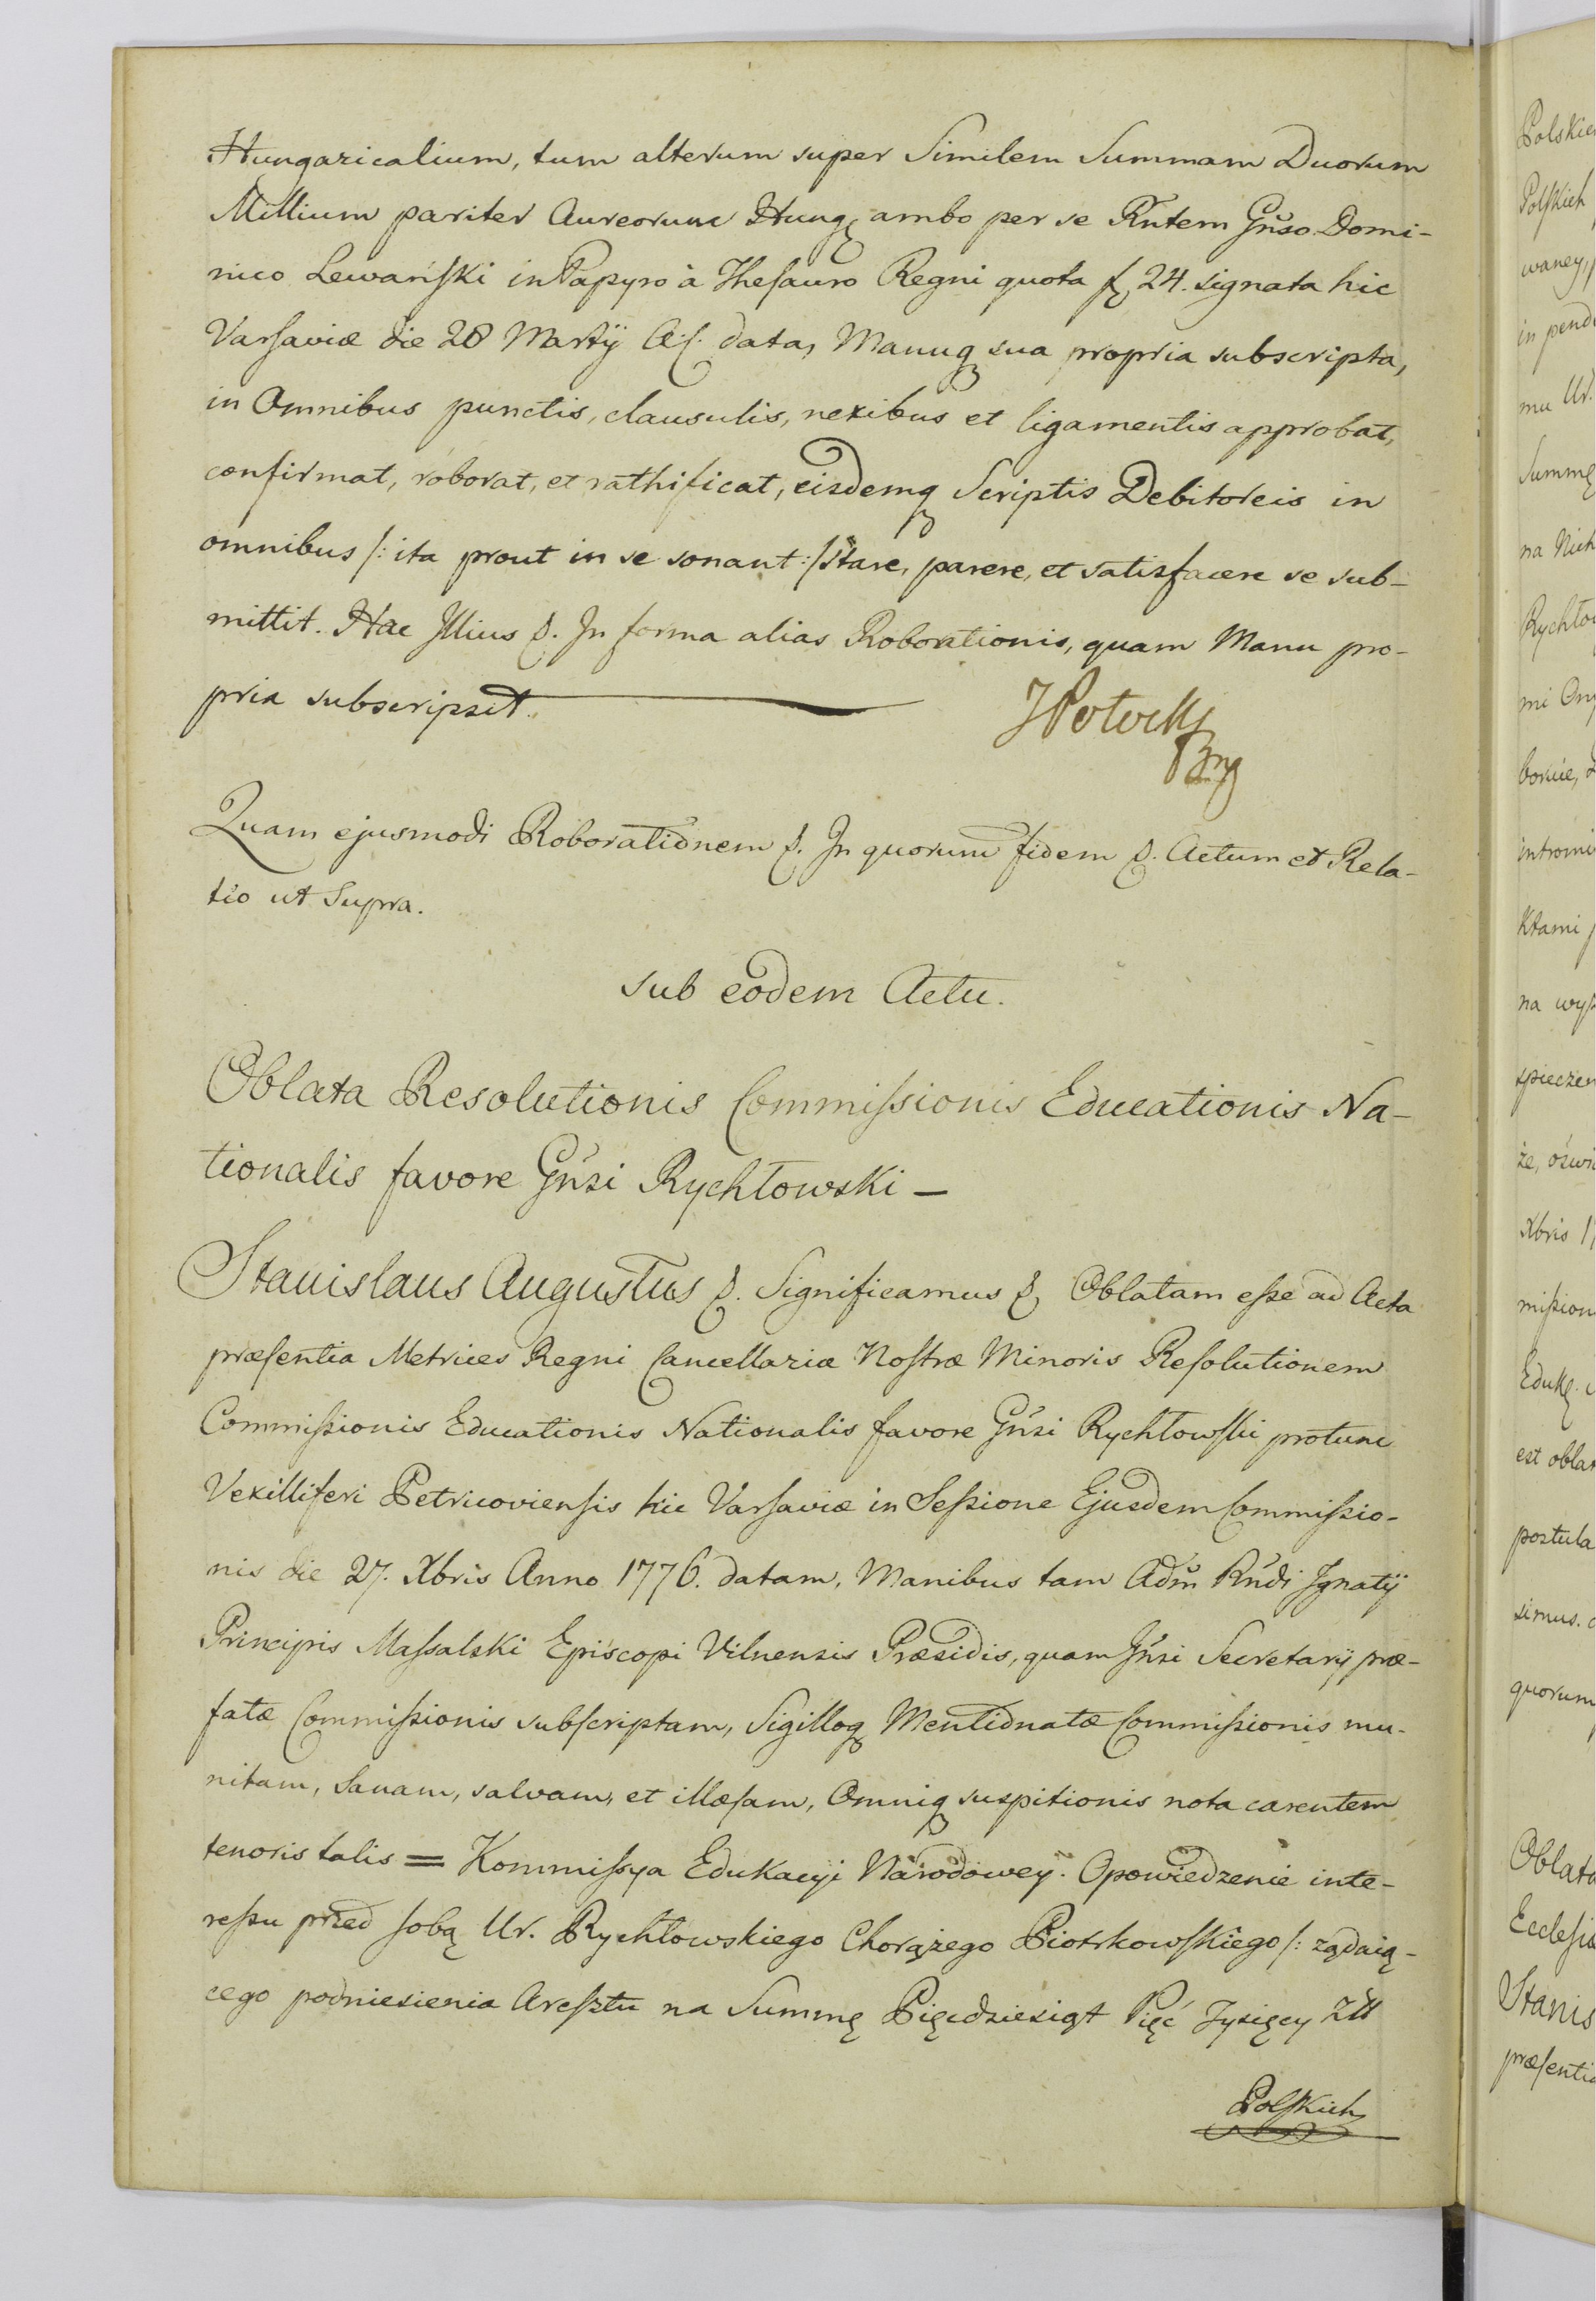 Hungaricalium, tum alterum super Similem Summam Duorum
Millium pariter Aureorum Hung: ambo per se Rntem Gnso Domi-
nico Lewańſki in Papyro à Theſauro Regni quota f 24. signata hic
Varſaviæ die 28 Martÿ A. c. data, Manuq sua propria subscripta,
in Omnibus punctis, clausulis, nexibus et ligamentis approbat,
confirmat, roborat, et rathificat, eisdemq Scriptis Debitoreis in
omnibus /: ita prout in se sonant :/ stare, parere, et satisfacere se sub-
mittit. Hac Jllius &. Jn forma alias Roborationis, quam Manu pro-
pria subscripsit.
JPotocki
Quam ejusmodi Roborationem &. Jn quorum fidem &. Actum et Rela-
tio ut Supra.
sub eodem Actu.
Oblata Resolutionis Commiſsionis Educationis Na-
tionalis favore Gnsi Rychłowski –
Stanislaus Augustus &. Significamus &. Oblatam eſse ad Acta
præſentia Metrices Regni Cancellariæ Noſtræ Minoris Reſolutionem
Commiſsionis Educationis Nationalis favore Gnsi Rychłowſki protunc
Vexilliferi Petricovienſis hic Varſaviæ in Seſsione Ejusdem Commiſsio-
nis die 27. Xbris Anno 1776. datam, Manibus tam Adm Rndi Jgnatÿ
Principis Maſsalski Episcopi Vilnensis Præsidis, quam Gnsi Secretarÿ præ-
fatæ Commiſsionis subſcriptam, Sigilloq Mentionatæ Commiſsionis mu-
nitam, Sanam, salvam, et illæſam, Omniq suspitionis nota carentem
tenoris talis = Kommiſsya Edukacyi Narodowey. Opowiedzenie inte-
reſsu przed sobą Ur. Rychłowskiego Chorążego Piotrkowſkiego /: żądaią-
cego podniesienia Areſztu na Summę Pięcdziesiąt Pięć Tysięcy Złł
Polſkich